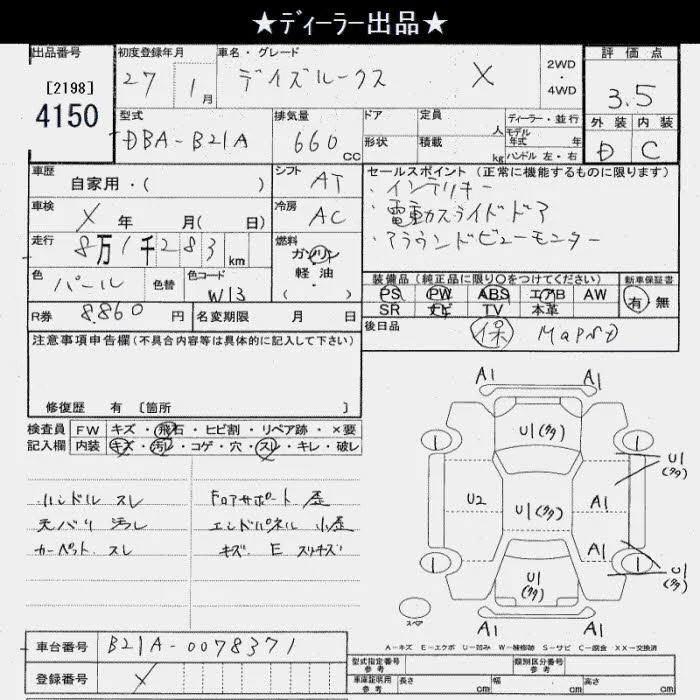 ★ディーラー出品★
出品番号 初度登録年月 車名・グレード 2WD・4WD 評価点
[2198] 27 1月 デイズルークス X 3.5
4150
型式 排気量 ドア 定員 人 ディーラー・並行 外装 内装
DBA-B21A 660 CC 形状 積載 kg モデル年式 年 ハンドル 左・右 D C
車歴 シフト セールスポイント (正常に機能するものに限ります)
自家用・( ) AT ・インテリキー
車検 冷房 ・電動スライドドア
X 年 月( 日) AC ・アラウンドビューモニター
走行 燃料
8万1千283 km ガソリン
軽油
( )
色 色替 色コード 装備品 (純正品に限り○をつけてください) 新車保証書
パール W13 PS PW ABS エアB AW 有 無
SR ナビ TV 本革
R券 8.860 円 名変期限 月 日 後日品
保
注意事項申告欄(不具合内容等は具体的に記入して下さい)
修復歴 有 [箇所 ]
検査員 FW キズ・飛石・ヒビ割・リペア跡・×要
記入欄 内装 キズ・汚レ・コゲ・穴・スレ・キレ・破レ
ハンドル スレ フロアサポート 歪
天バリ 汚レ エンドパネル 小歪
カーペット スレ キズ E スリキズ
A1 A1
U1(タタ)
1 1
U1
(タタ)
U2 U1(タタ) A1
A1
1 U1
(タタ) 1 U1
(タタ)
スペア
A1 A1
A-キズ E-エクボ U-凹み W-補修跡 S-サビ C-腐食 XX-交換済
車台番号 B21A-0078371
登録番号 X
型式指定番号 参考 類別区分番号 参考
車庫証明用 参考 長さ cm 幅 cm 高さ cm